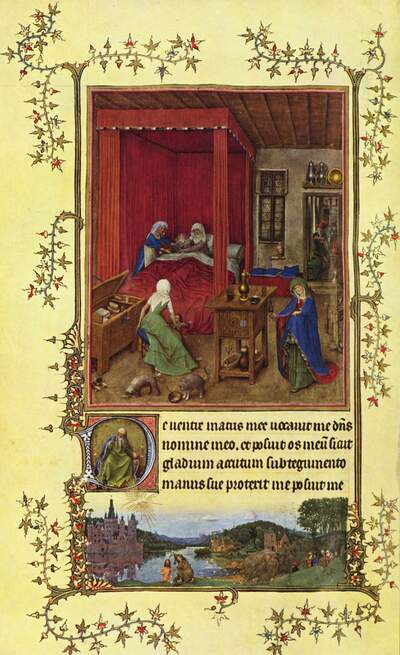 De ventre matris mee vocauit me dn̄s
nomine meo. et posuit os meū sicut
gladium accutum sub tegumento
manus sue protexit me posuit me